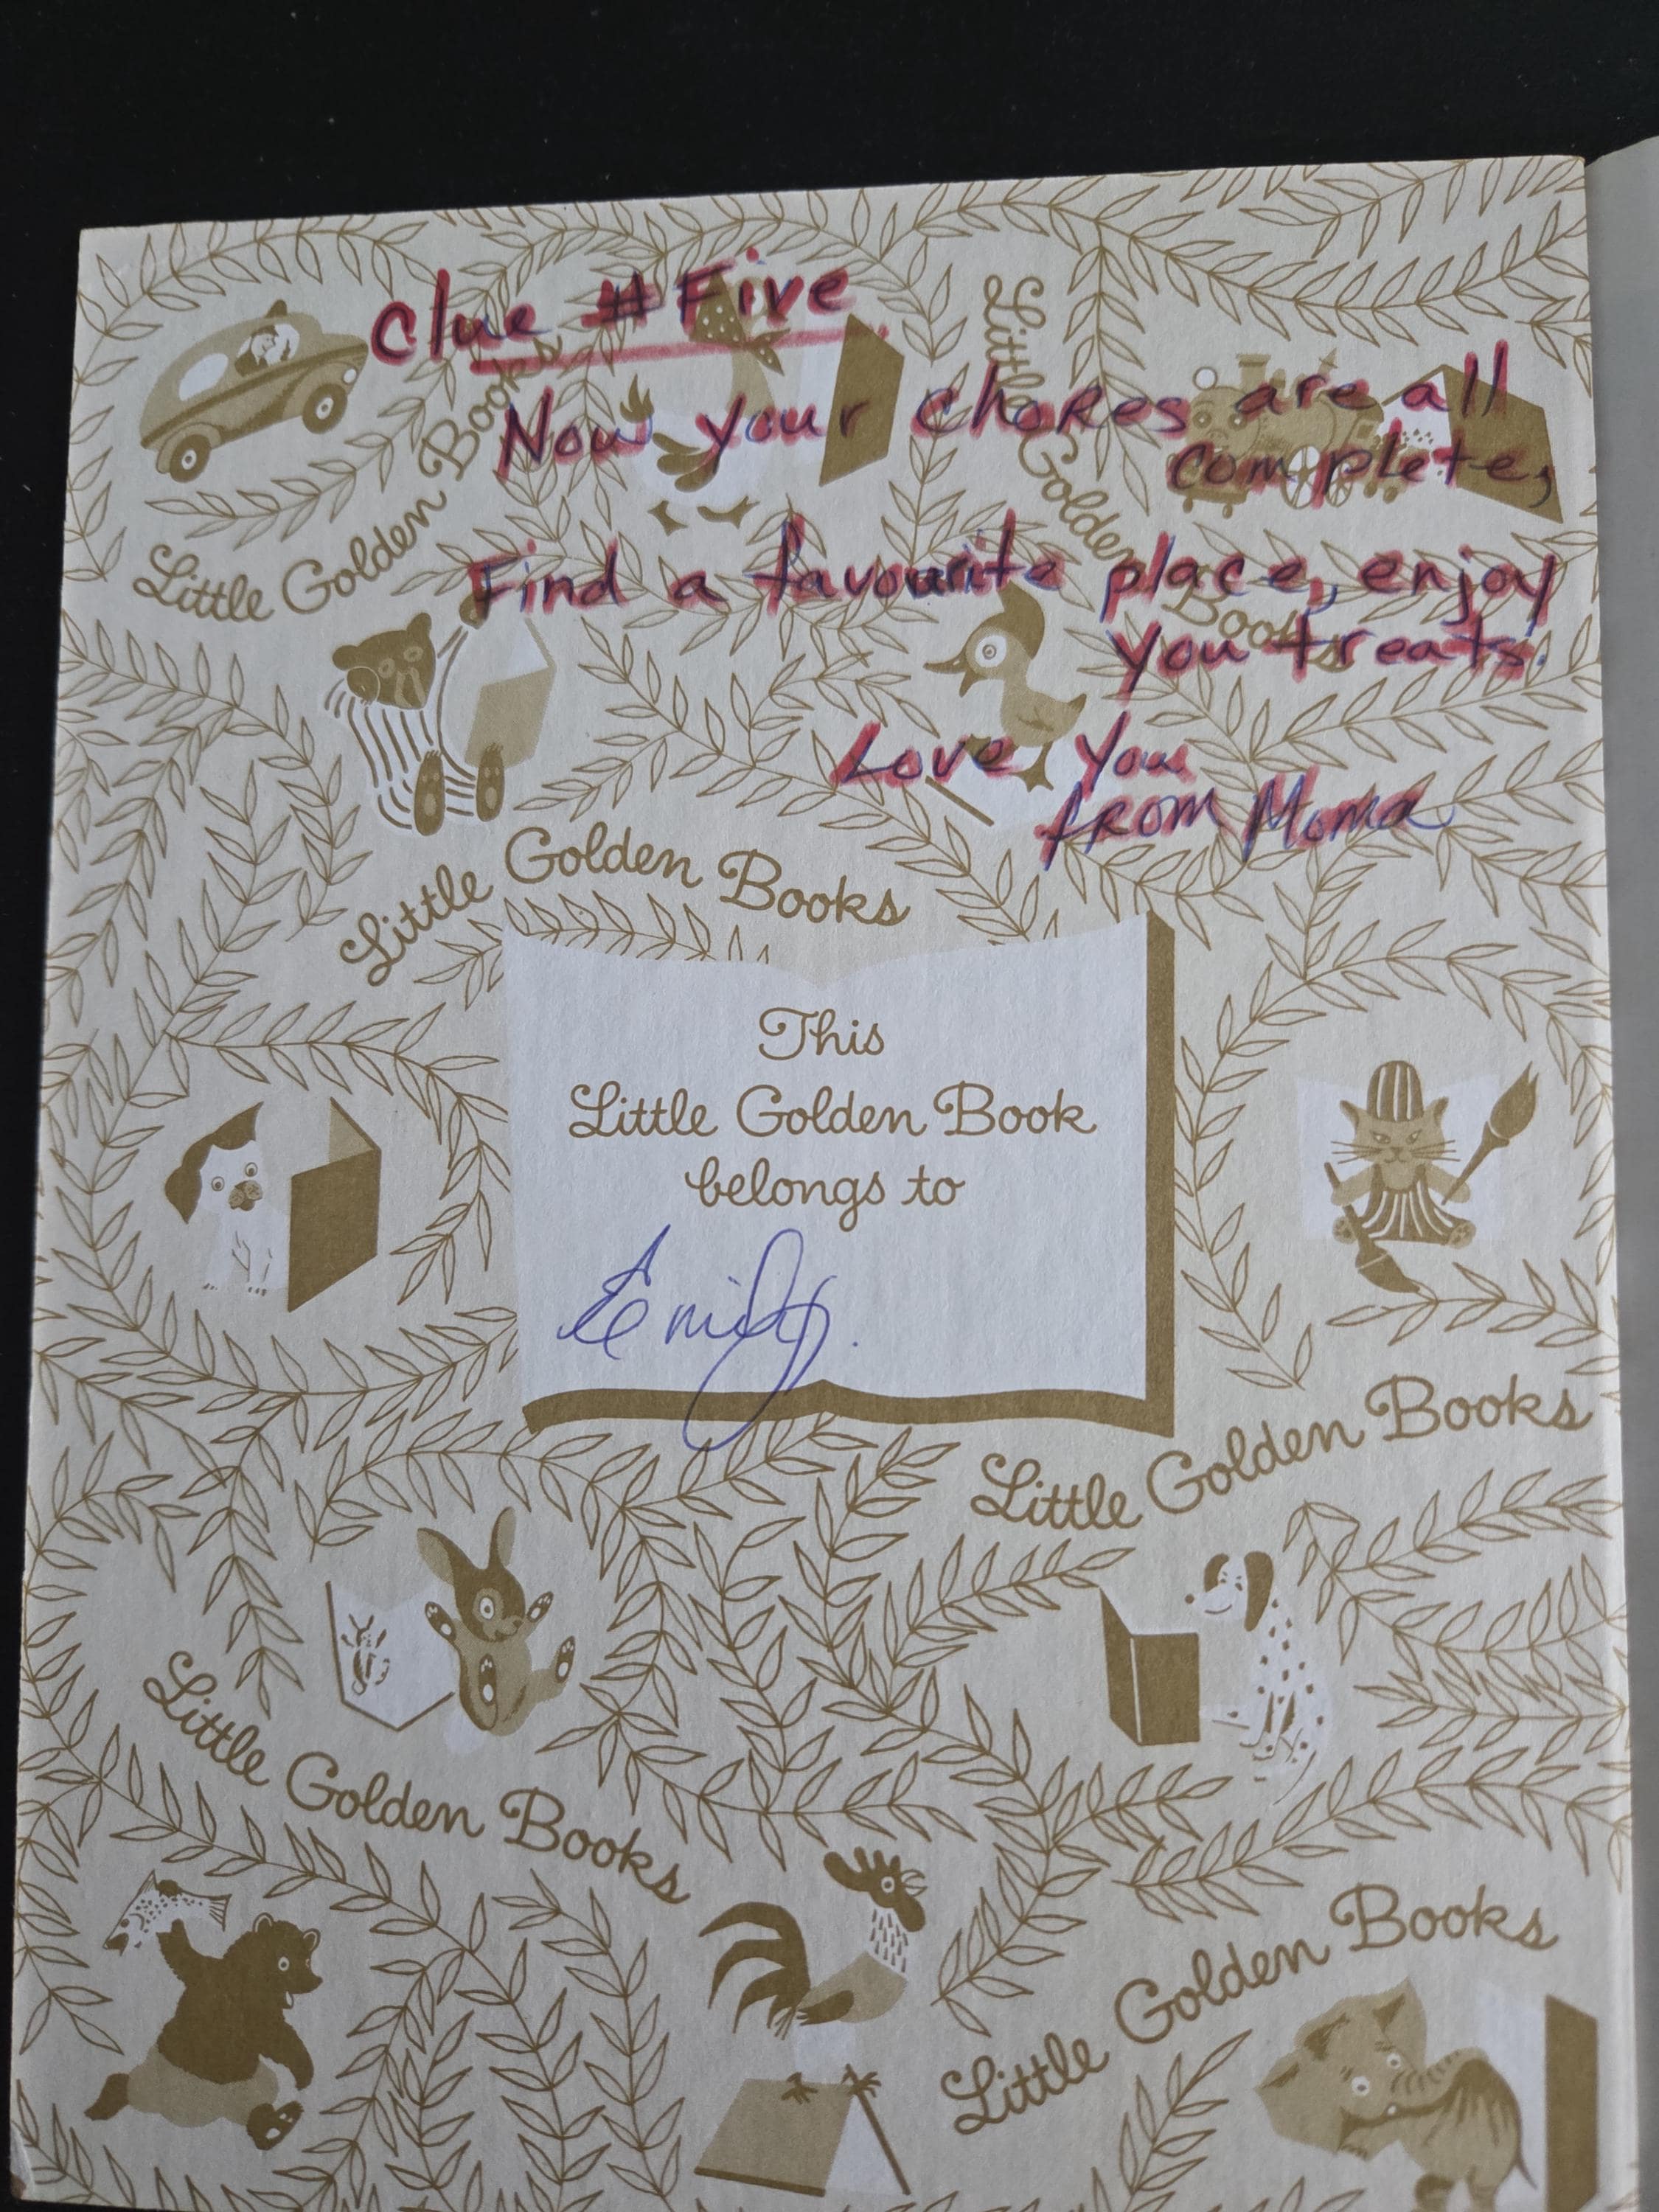 Clue # Five
Now your chores are all
complete,
Find a favourite place, enjoy
you treats.
Love You
from Moma
Little Golden Books
Little Golden Books
Little Golden Books
This
Little Golden Book
belongs to
Emily.
Little Golden Books
Little Golden Books
Little Golden Books